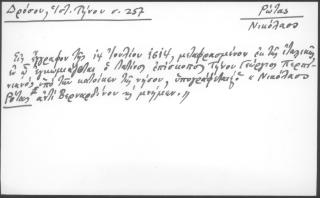 Δρόσου, Ἱστ. Τήνου σ. 257
Ρώτας
Νικόλαος
Εἰς ἔγγραφον τῆς 14 Ἰουλίου 1614, μεταφρασμένον ἐκ τῆς Ἰταλικῆς
ἐν ᾧ ἐγκωμιάζεται ὁ Λατῖνος ἐπίσκοπος Τήνου Γεώργιος Περπι-
νιανός ὑπὸ τῶν κατοίκων τῆς νήσου, ὑπογράφεται ὁ Νικόλαος
Ρώτας ἀντὶ Βερναρδίνου μνήμων.